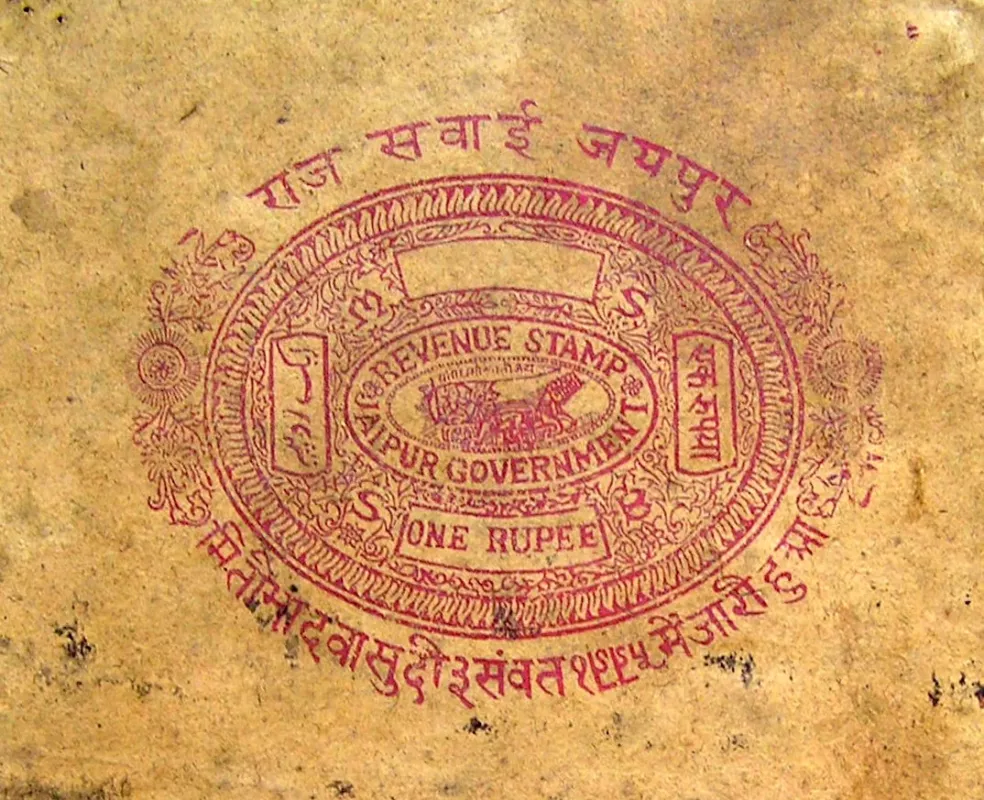 राज सवाई जयपुर
REVENUE STAMP
JAIPUR GOVERNMENT
एक रुपया
ONE RUPEE
मिती भादवा सुदी ३ संवत १९९५ में जारी हुआ